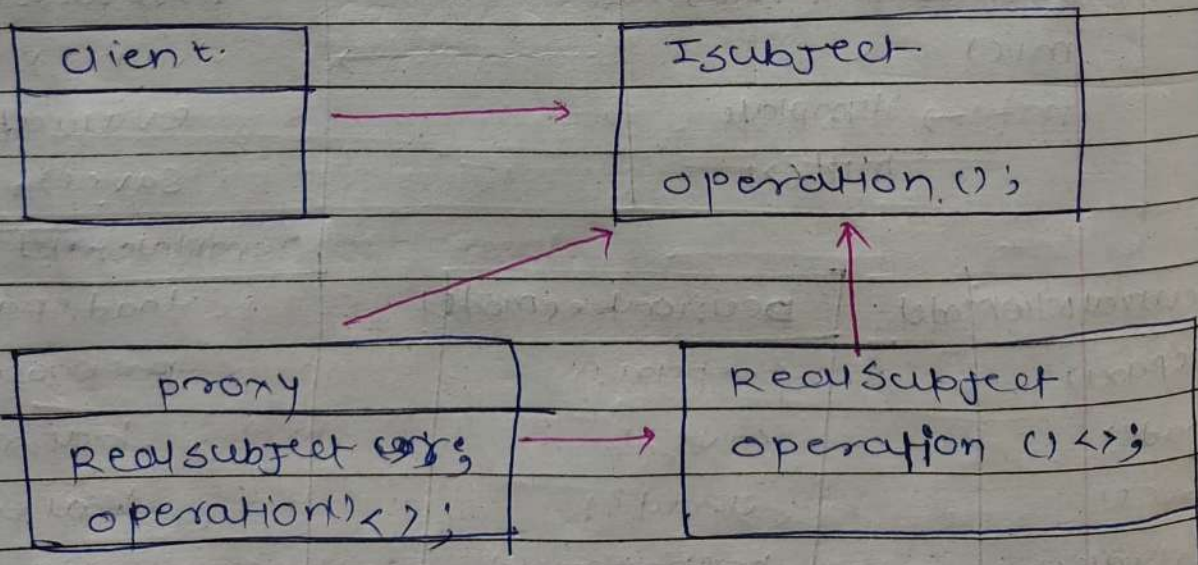 Client.
Isubject
operation ();
proxy
Realsubject
operation() < > ;
RealSubject
operation () < > ;